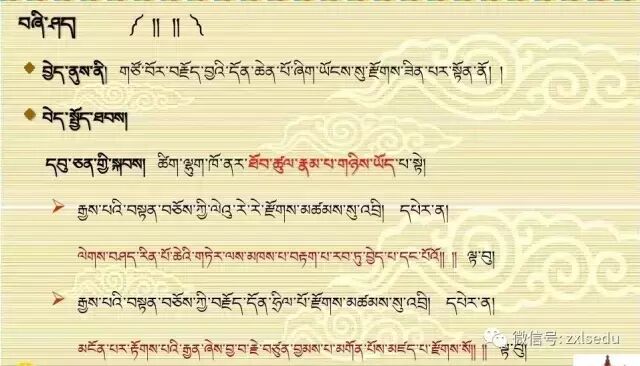 བཞི་ཤད། ༼ ༎ ༎ ༽
བྱེད་ནུས་ནི། གཙོ་བོར་བརྗོད་བྱའི་དོན་ཆེན་པོ་ཞིག་ཡོངས་སུ་རྫོགས་ཟིན་པར་སྟོན་ནོ། །
བེད་སྤྱོད་ཐབས།
དབུ་ཅན་གྱི་སྐབས། ཚིག་ལྷུག་ཁོ་ནར་ཐོབ་ཚུལ་རྣམ་པ་གཉིས་ཡོད་པ་སྟེ།
རྒྱས་པའི་བསྟན་བཅོས་ཀྱི་ལེའུ་རེ་རེ་རྫོགས་མཚམས་སུ་འབྲི། དཔེར་ན།
ལེགས་བཤད་རིན་པོ་ཆེའི་གཏེར་ལས་མཁས་པ་བརྟག་པ་རབ་ཏུ་བྱེད་པ་དང་པོའོ།། །། ལྟ་བུ།
རྒྱས་པའི་བསྟན་བཅོས་ཀྱི་བརྗོད་དོན་ཧྲིལ་པོ་རྫོགས་མཚམས་སུ་འབྲི། དཔེར་ན།
མངོན་པར་རྟོགས་པའི་རྒྱན་ཞེས་བྱ་བ་རྗེ་བཙུན་བྱམས་པ་མགོན་པོས་མཛད་པ་རྫོགས་སོ།། །། ལྟ་བུ།
微信号: zxlsedu